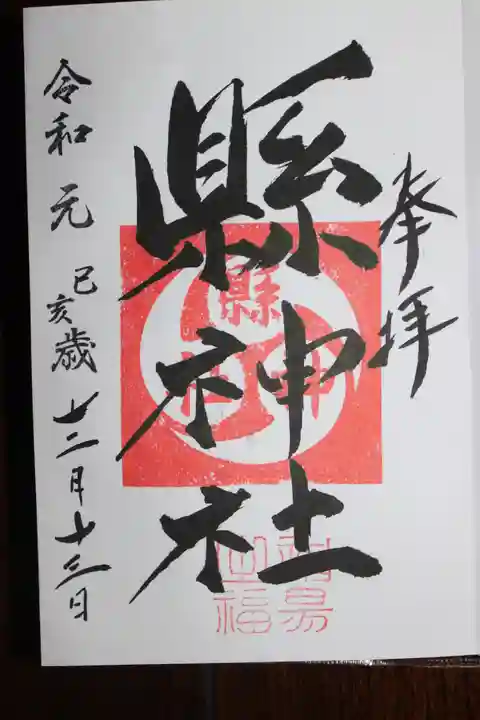 奉拝
縣神社
令和元己亥歳十二月十三日
縣
神
社